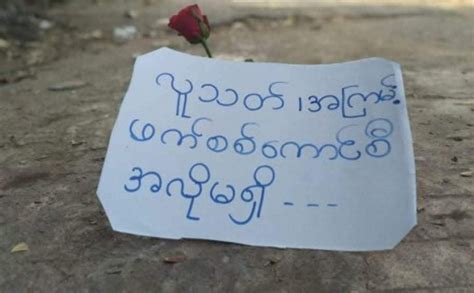 လူသတ် ၊အကြမ်း
ဖက်စစ်ကောင်စီ
အလိုမရှိ ---